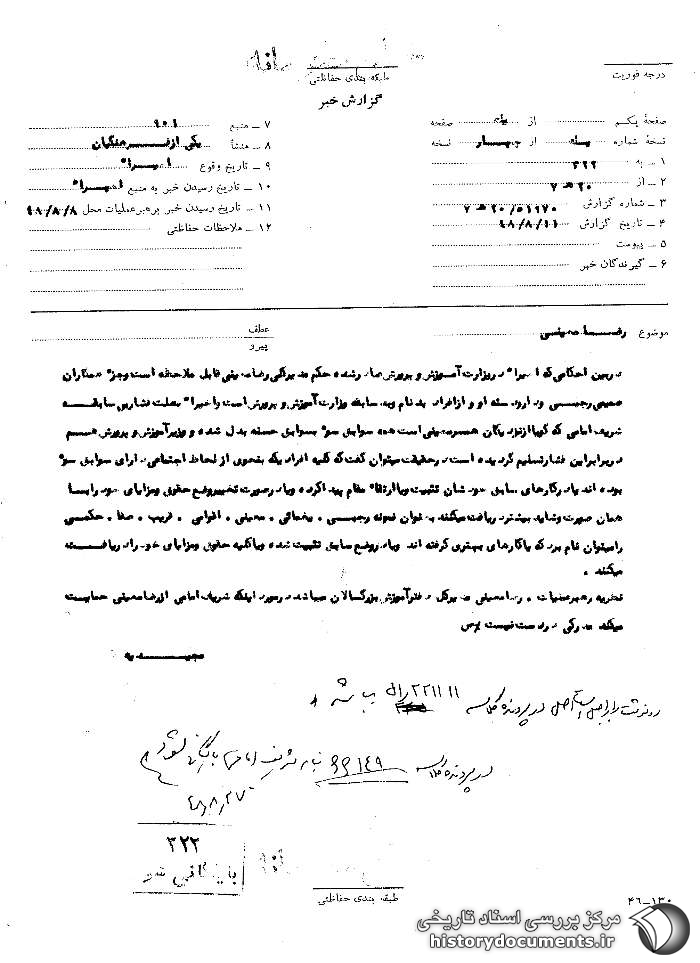 درجه فوریت
طبقه بندی حفاظتی
گزارش خبر
صفحهٔ یکم از یک صفحه
نسخهٔ شماره یک از چهار نسخه
۱ ـ به ۳۲۲
۲ ـ از ۲۰ ه ۷
۳ ـ شماره گزارش ۲۰/۵۱۹۷۰ ه ۷
۴ ـ تاریخ گزارش ۴۸/۸/۱۱
۵ ـ پیوست
۶ ـ گیرندگان خبر
۷ ـ منبع ۹۰۱
۸ ـ منشأ یکی از فرهنگیان
۹ ـ تاریخ وقوع اخیرا"
۱۰ ـ تاریخ رسیدن خبر به منبع اخیرا"
۱۱ ـ تاریخ رسیدن خبر برهبر عملیات محل ۴۸/۸/۸
۱۲ ـ ملاحظات حفاظتی
موضوع رضا معینی
عطف
پیرو
در بین احکامی که اخیرا" در وزارت آموزش و پرورش صادر شده حکم مدیرکلی رضا معینی قابل ملاحظه است وجزء همکاران
صمیمی رجبی و دارودسته او و از افراد بدنام وبد سابقه وزارت آموزش و پرورش است واخیرا" بعلت فشار بی سابقه
شریف امامی که گویا از نزدیکان همسر معینی است همه سوابق سوء بسوابق حسنه بدل شده و وزیر آموزش و پرورش هم
در برابر این فشار تسلیم گردیده است در حقیقت میتوان گفت که کلیه افراد یکه بنحوی از لحاظ اجتماعی دارای سوابق سوء
بوده اند یا در کارهای سابق خودشان تثبیت ویا ارتقاء مقام پیدا کرده ویا در صورت تغییر وضع حقوق ومزایای خود را بسا
همان صورت وشاید بیشتر دریافت میکنند بعنوان نمونه رجبی ، یغمائی ، معینی ، اقوامی ، فریب ، صفا ، حکمی
را میتوان نام برد که یا کارهای بهتری گرفته اند ویا در وضع سابق تثبیت شده ویا کلیه حقوق ومزایای خود را دریافت
میکنند .
نظریه رهبر عملیات . رضا معینی مدیرکل دفتر آموزش بزرگسالان میباشد در مورد اینکه شریف امامی از رضا معینی حمایت
میکند مدرکی در دست نیست
مجیدیه
در پرونده کلاسه ۶۶۱۴۹ بنام شریف امامی بایگانی شود
۴۸/۸/۲۷
۳۲۲
بایگانی شود
طبقه بندی حفاظتی
۴۶ـ۱۳۰
مرکز بررسی اسناد تاریخی
historydocuments.ir